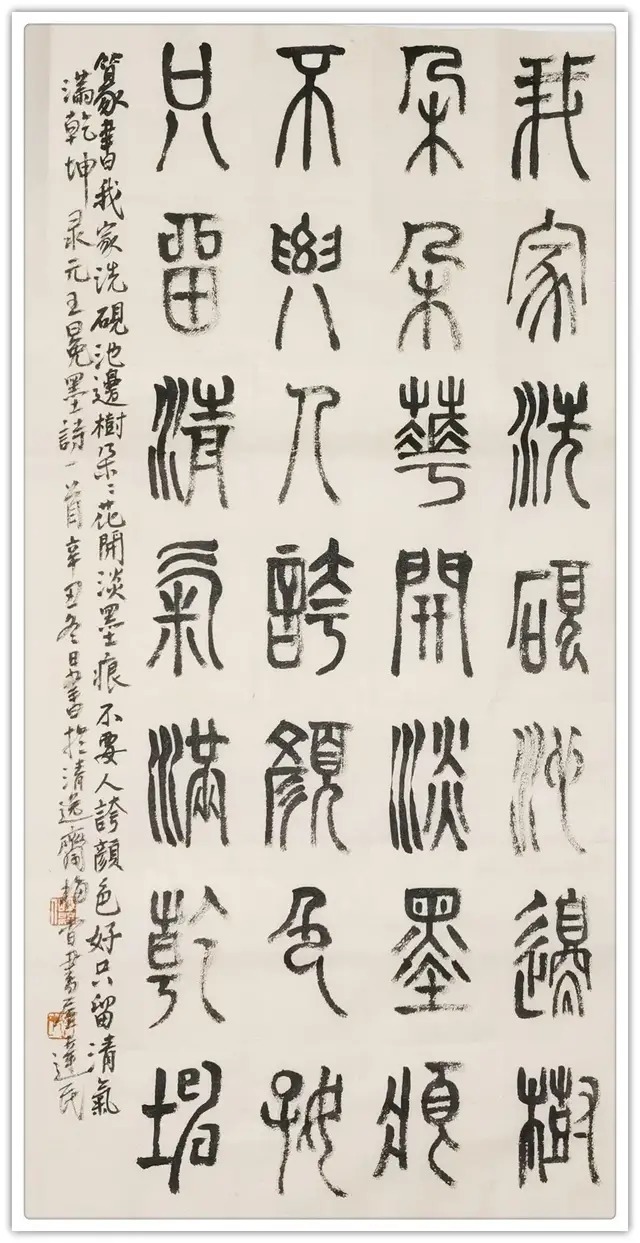 我家洗硯池邊樹
朵朵華開淡墨痕
不要人誇顏色好
只留清氣滿乾坤
篆書我家洗硯池邊樹朵〻花開淡墨痕不要人誇顏色好只留清氣
滿乾坤 录元王冕墨詩一首辛丑冬日書於清逸齋梅書達民